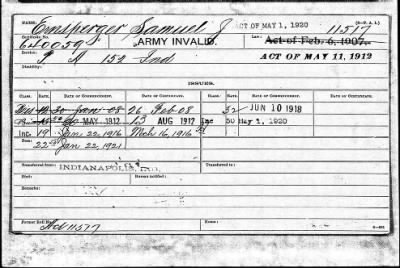 NAME: Ernsperger Samuel J ACT OF MAY 1, 1920 11517
Certificate No. 640059 ARMY INVALID. Act of Feb. 6, 1907.
Service: P A 152 Ind ACT OF MAY 11, 1912
Disability:
ISSUES.
CLASS. RATE. DATE OF COMMENCEMENT. DATE OF CERTIFICATE. CLASS. RATE. DATE OF COMMENCEMENT. DATE OF CERTIFICATE.
30 Jan 08 26 Feb 08 32 JUN 10 1918
MAY 1912 13 AUG 1912 Inc 50 May 1, 1920
Inc 19 Jan 22, 1916 Mch 16 1916
22.50 Jan 22, 1921
Transferred from INDIANAPOLIS, IND.
Died:
Remarks:
Former Roll No. Act 11517
Home: